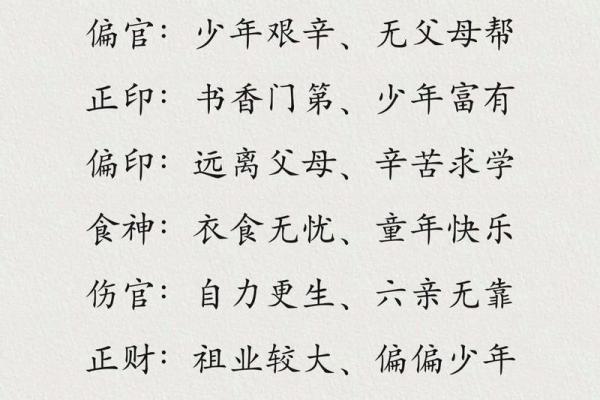 偏官：少年艰辛、无父母帮
正印：书香门第、少年富有
偏印：远离父母、辛苦求学
食神：衣食无忧、童年快乐
伤官：自力更生、六亲无靠
正财：祖业较大、偏偏少年